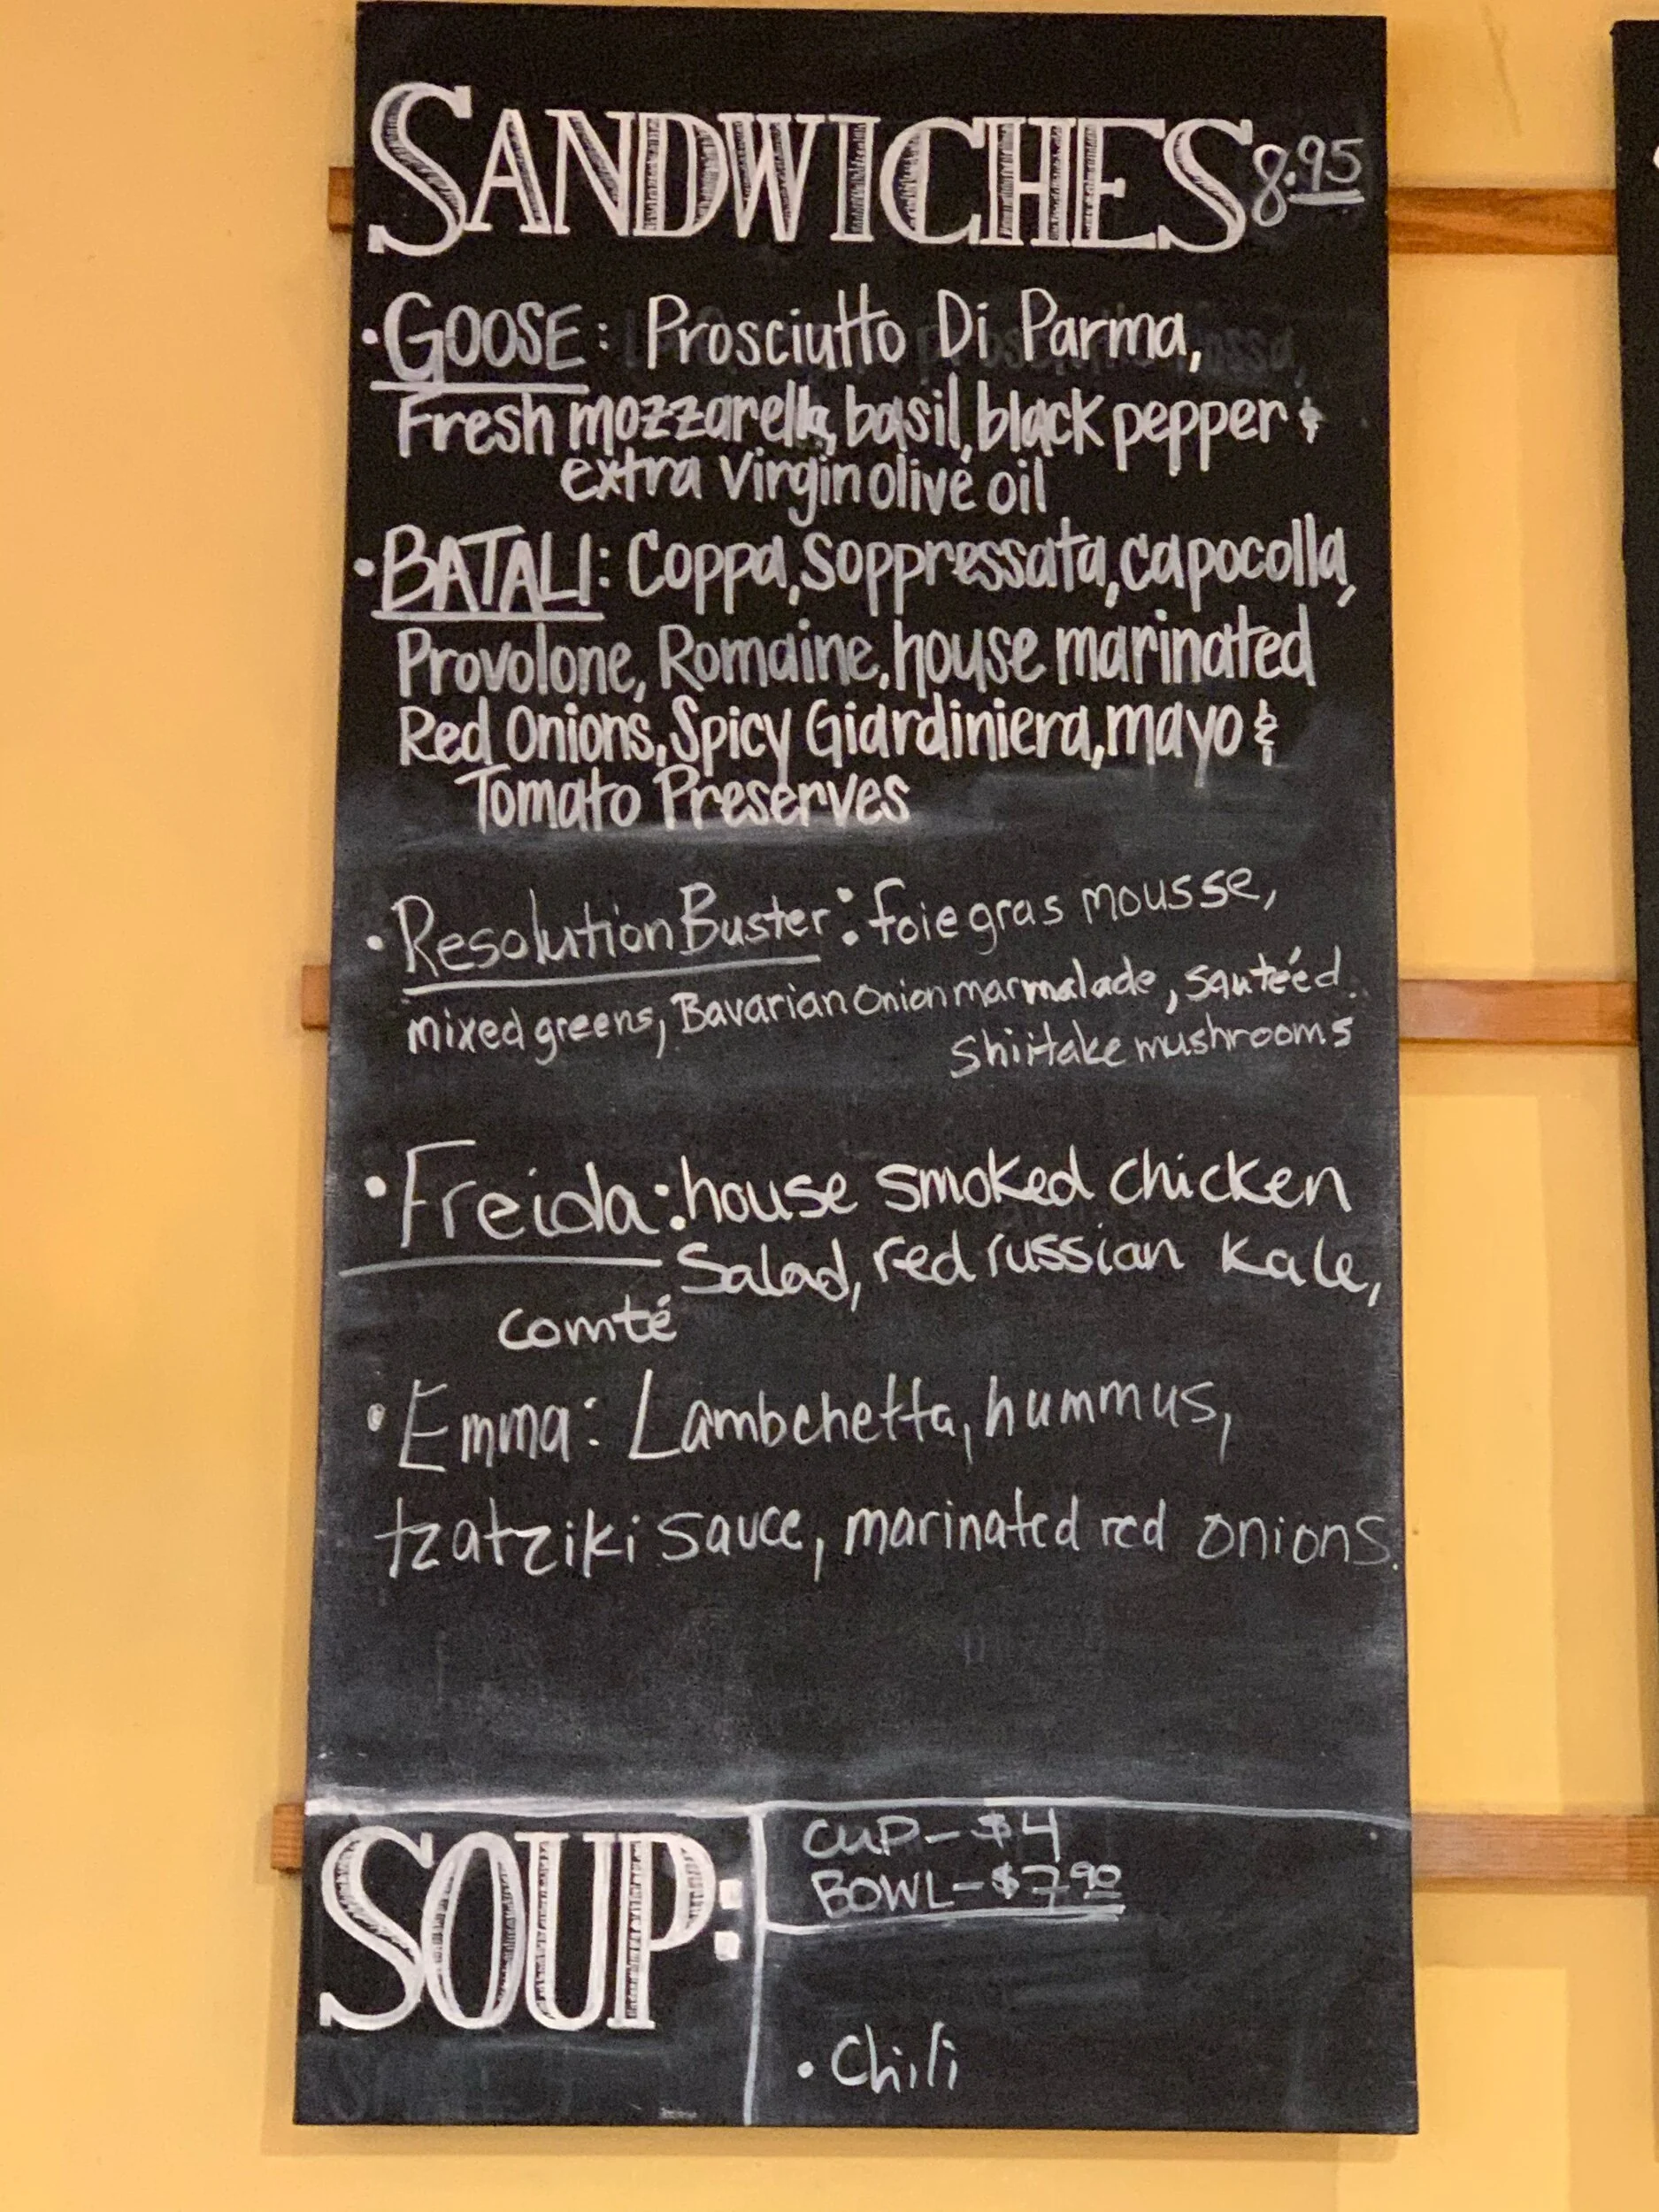 SANDWICHES 8.95
• GOOSE: Prosciutto Di Parma,
Fresh mozzarella, basil, black pepper &
extra virgin olive oil
• BATALI: Coppa, Soppressata, capocolla,
Provolone, Romaine, house marinated
Red Onions, Spicy Giardiniera, mayo &
Tomato Preserves
• Resolution Buster: foie gras mousse,
mixed greens, Bavarian Onion marmalade, sauteéd
Shiitake mushrooms
• Freida: house smoked chicken
Salad, red russian kale,
comté
• Emma: Lambchetta, hummus,
tzatziki sauce, marinated red onions.
SOUP:
CUP - $4
BOWL - $7.90
• Chili